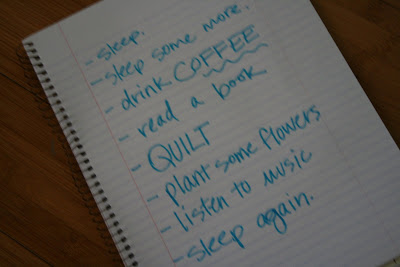 - sleep.
- sleep some more.
- drink COFFEE
- read a book
- QUILT
- plant some flowers
- listen to music
- sleep again.